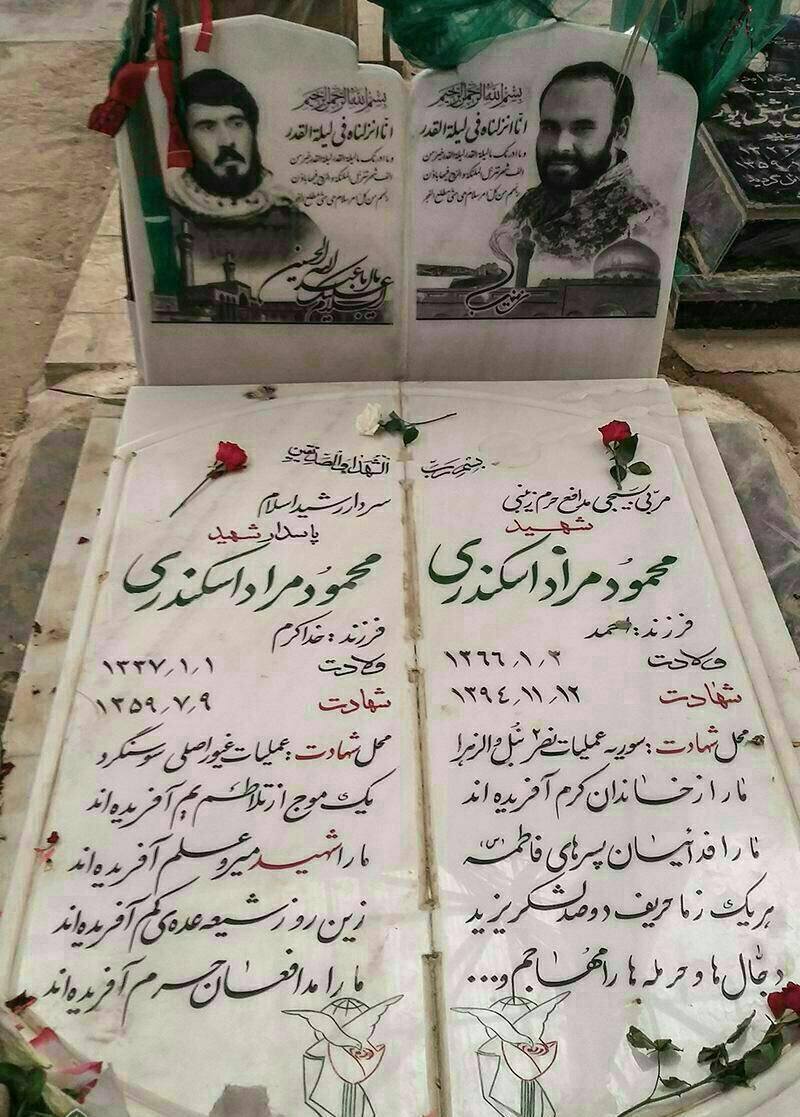 بسم الله الرحمن الرحیم
انا انزلناه فی لیلة القدر
و ما ادریک ما لیلة القدر لیلة القدر خیر من
الف شهر تنزل الملئکة و الروح فیها باذن
ربهم من کل امر سلام هی حتی مطلع الفجر
بسم الله الرحمن الرحیم
انا انزلناه فی لیلة القدر
و ما ادریک ما لیلة القدر لیلة القدر خیر من
الف شهر تنزل الملئکة و الروح فیها باذن
ربهم من کل امر سلام هی حتی مطلع الفجر
بسم رب الشهداء و الصدیقین
مربی بسیجی مدافع حرم زینبی
شهید
محمود مراد اسکندری
فرزند : احمد
ولادت ۱۳۶۶٫۱٫۳
شهادت ۱۳۹۴٫۱۱٫۱۲
محل شهادت : سوریه عملیات نصر ۲ نبل و الزهرا
ما را از خاندان کرم آفریده اند
ما را فدائیان پسرهای فاطمه (س)
هر یک ز ما حریف دو صد لشکر یزید
دجال ها و حرمله ها را مهاجم و...
سردار رشید اسلام
پاسدار شهید
محمود مراد اسکندری
فرزند : خداکرم
ولادت ۱۳۳۷٫۱٫۱
شهادت ۱۳۵۹٫۷٫۹
محل شهادت : عملیات غیور اصلی سوسنگرد
یک موج از تلاطم یم آفریده اند
ما را شهید میر و علم آفریده اند
زین رو ز شیعه عده ی کم آفریده اند
ما را مدافعان حرم آفریده اند